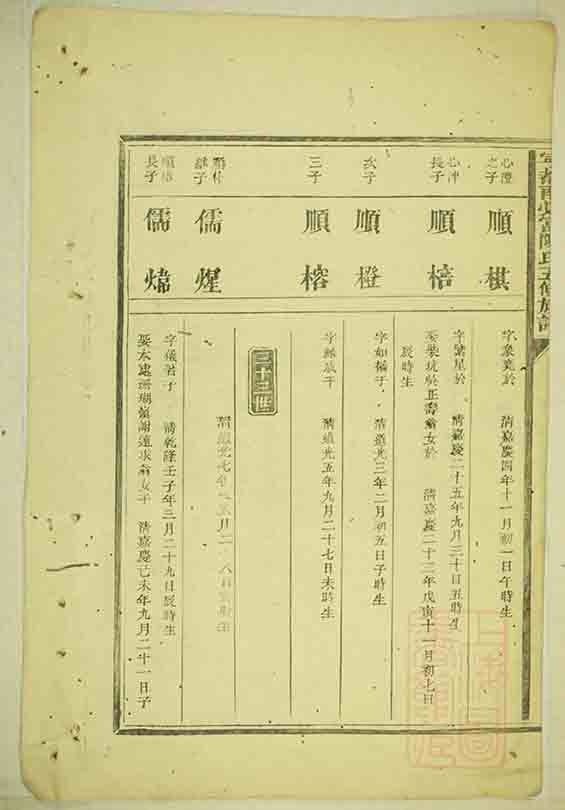 心澄之子
順棋
字衆美於 清嘉慶四年十一月初一日午時生
心沖長子
順棓
字繁星於 清嘉慶二十五年九月三十日丑時生
娶裝坑吳正壽翁女於 清嘉慶二十三年戊寅十一月初七日
辰時生
次子
順橙
字如橘于 清道光三年二月初五日子時生
三子
順榕
清道光五年九月二十七日未時生
三十三世
繼子
儒煋
清道光
長子
儒煒
字儀著于 清乾隆壬子年三月二十九日辰時生
娶木處珊瑚嶺謝蓮求翁女于 清嘉慶己未年九月二十一日子